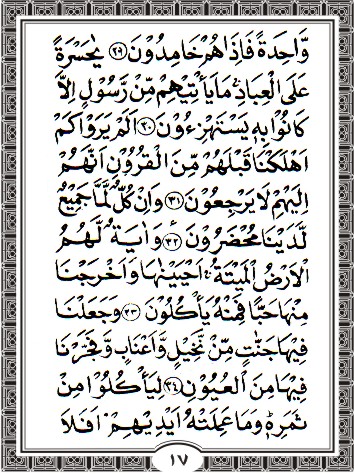 وَّاحِدَةً فَاِذَا هُمْ خَامِدُوْنَ ﴿۲۹﴾ يٰحَسْرَةً
عَلَى الْعِبَادِ ۚ مَا يَاْتِيْهِمْ مِّنْ رَّسُوْلٍ اِلَّا
كَانُوْا بِهٖ يَسْتَهْزِءُوْنَ ﴿۳۰﴾ اَلَمْ يَرَوْا كَمْ
اَهْلَكْنَا قَبْلَهُمْ مِّنَ الْقُرُوْنِ اَنَّهُمْ
اِلَيْهِمْ لَا يَرْجِعُوْنَ ﴿۳۱﴾ وَاِنْ كُلٌّ لَّمَّا جَمِيْعٌ
لَّدَيْنَا مُحْضَرُوْنَ ﴿۳۲﴾ وَاٰيَةٌ لَّهُمُ
الْاَرْضُ الْمَيْتَةُ ۚ اَحْيَيْنٰهَا وَاَخْرَجْنَا
مِنْهَا حَبًّا فَمِنْهُ يَاْكُلُوْنَ ﴿۳۳﴾ وَجَعَلْنَا
فِيْهَا جَنّٰتٍ مِّنْ نَّخِيْلٍ وَّاَعْنَابٍ وَّفَجَّرْنَا
فِيْهَا مِنَ الْعُيُوْنِ ﴿۳۴﴾ لِيَاْكُلُوْا مِنْ
ثَمَرِهٖ ۙ وَمَا عَمِلَتْهُ اَيْدِيْهِمْ ؕ اَفَلَا
۱۷